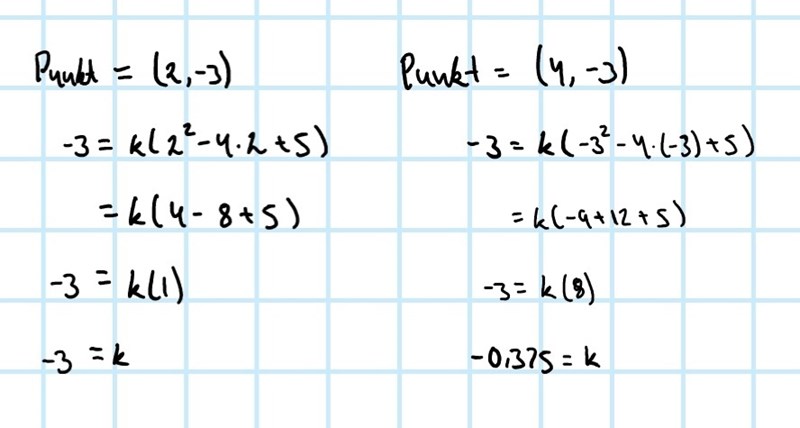 Punkt = (2,-3)
-3 = k(2²-4·2+5)
= k(4-8+5)
-3 = k(1)
-3 = k
Punkt = (4,-3)
-3 = k(-3²-4·(-3)+5)
= k(-9+12+5)
-3 = k(8)
-0,375 = k